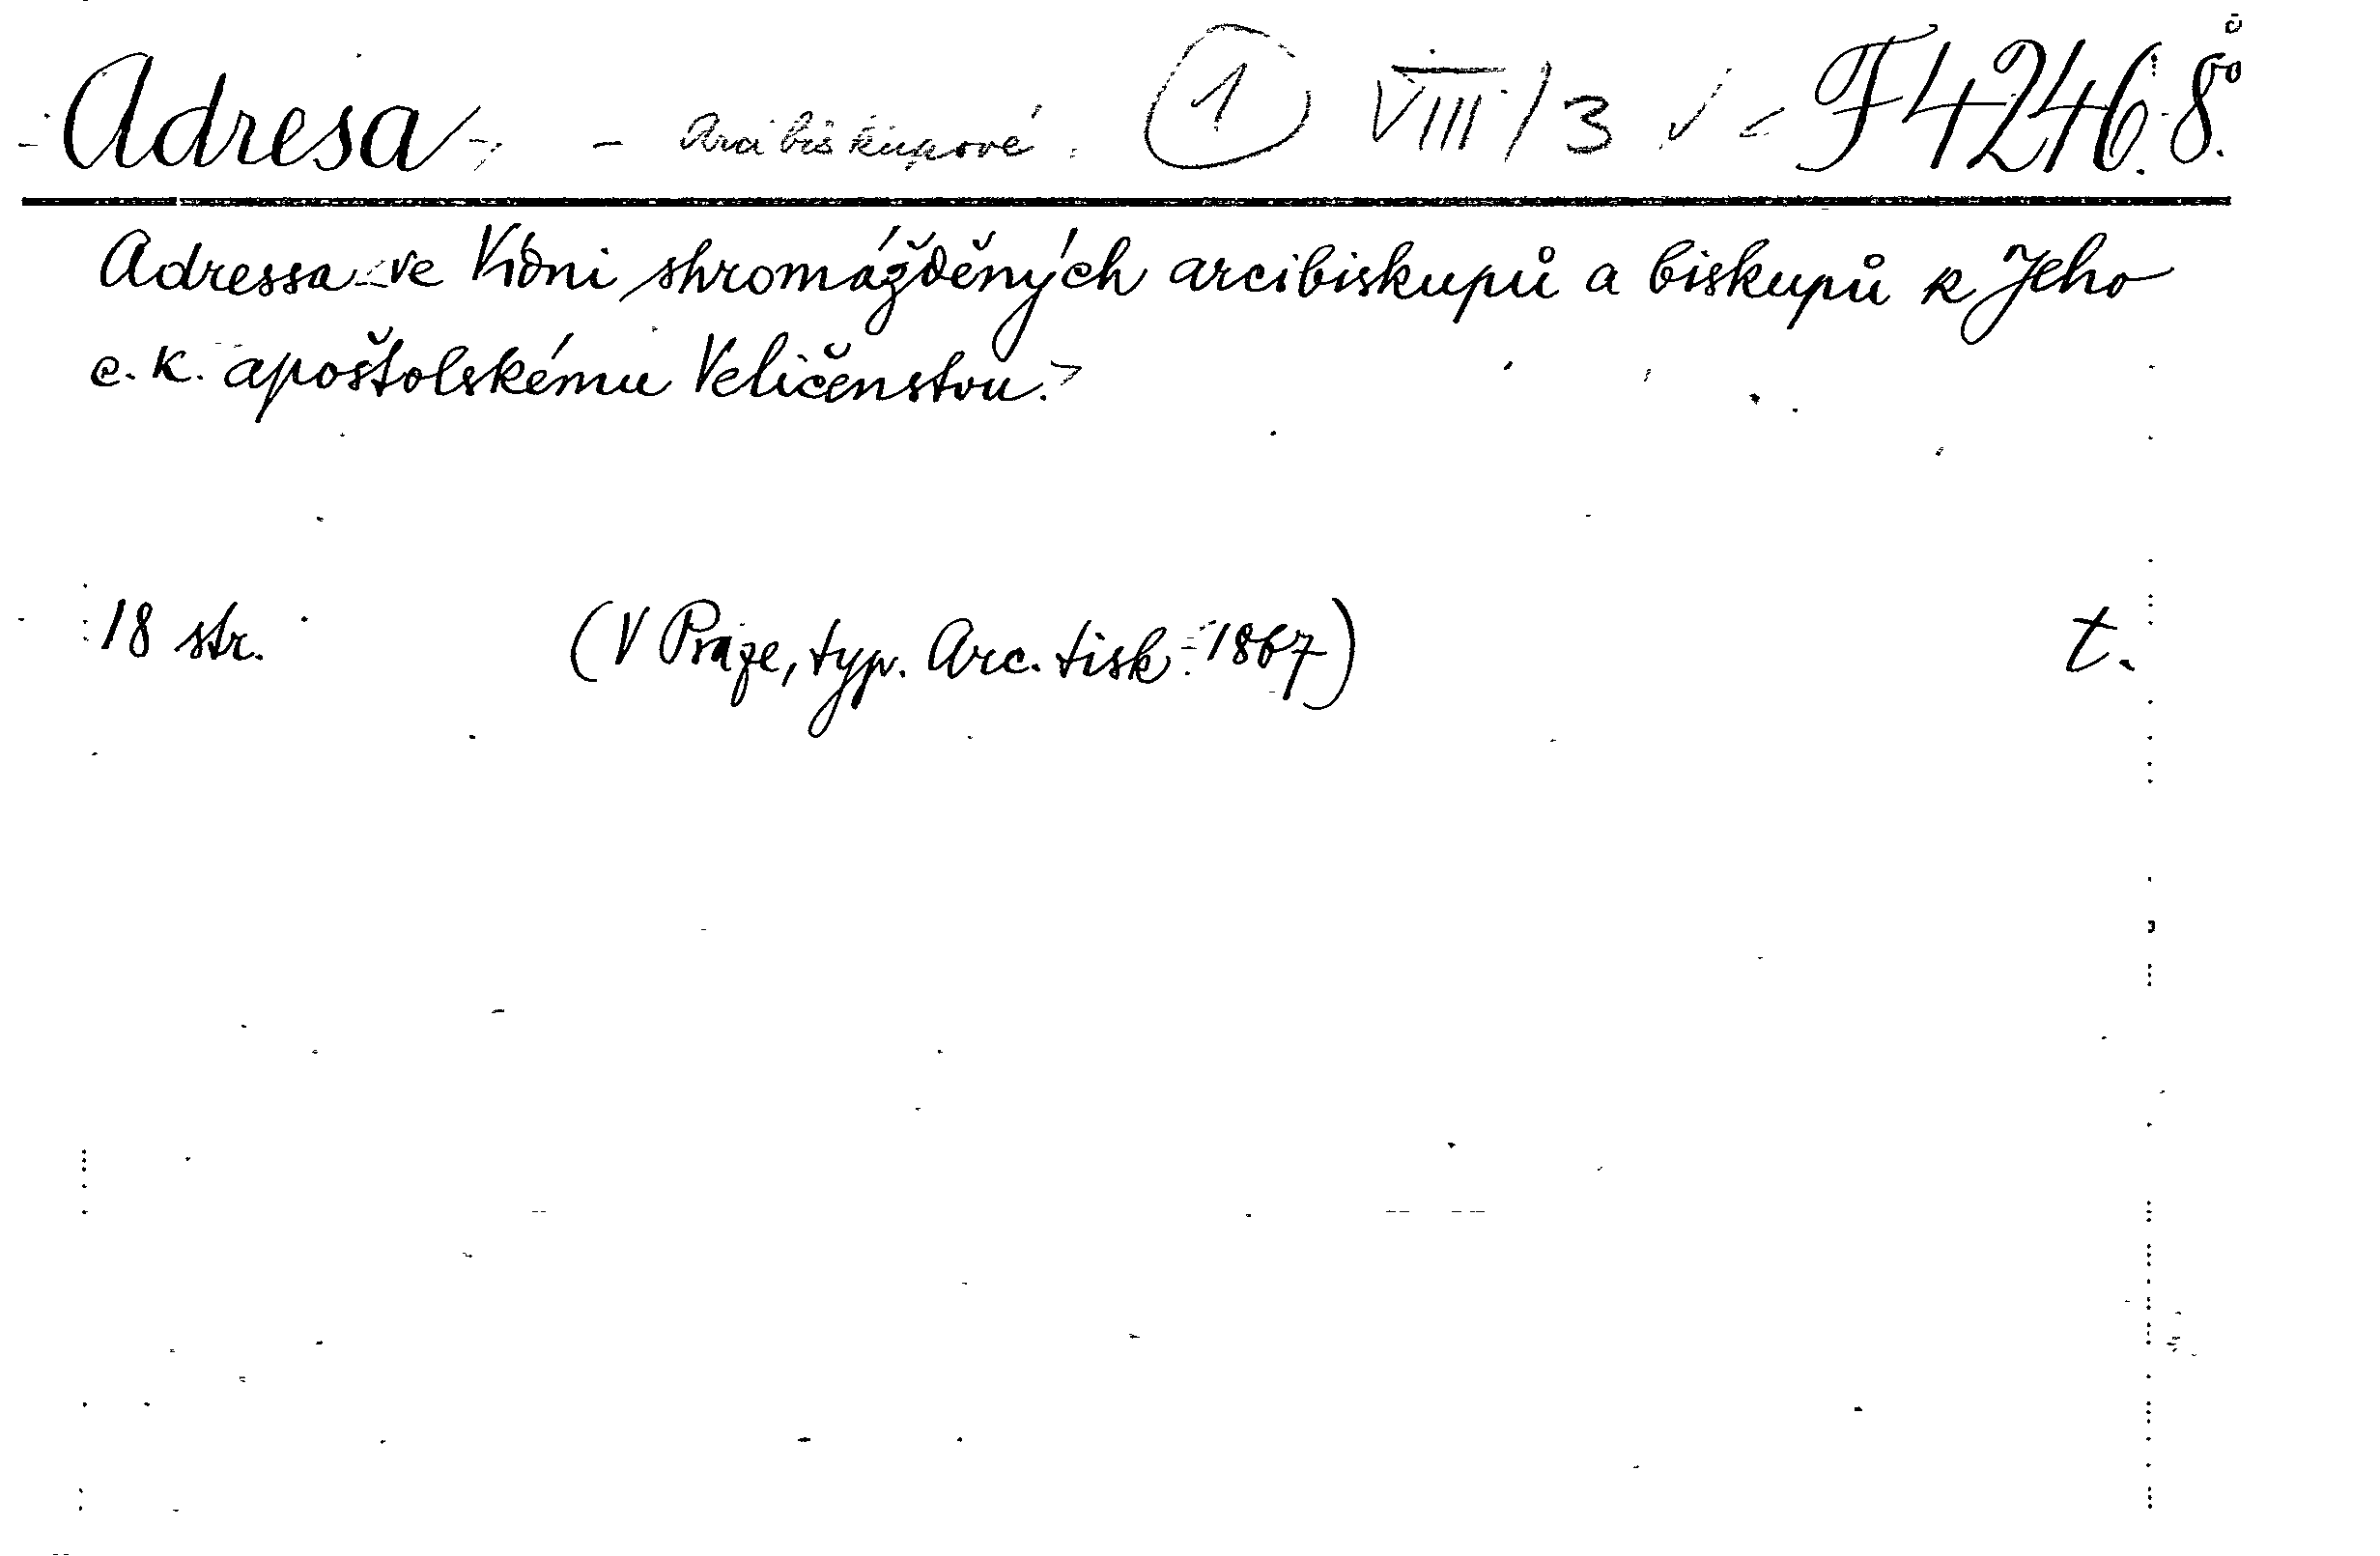 Adresa - Arcibiskupové. 1 VIII/3 F 4246. 8°
Adressa ve Vídni shromážděných arcibiskupů a biskupů k Jeho
c. k. apoštolskému Veličenstvu.
18 str. (V Praze, typ. Arc. tisk 1867) t.